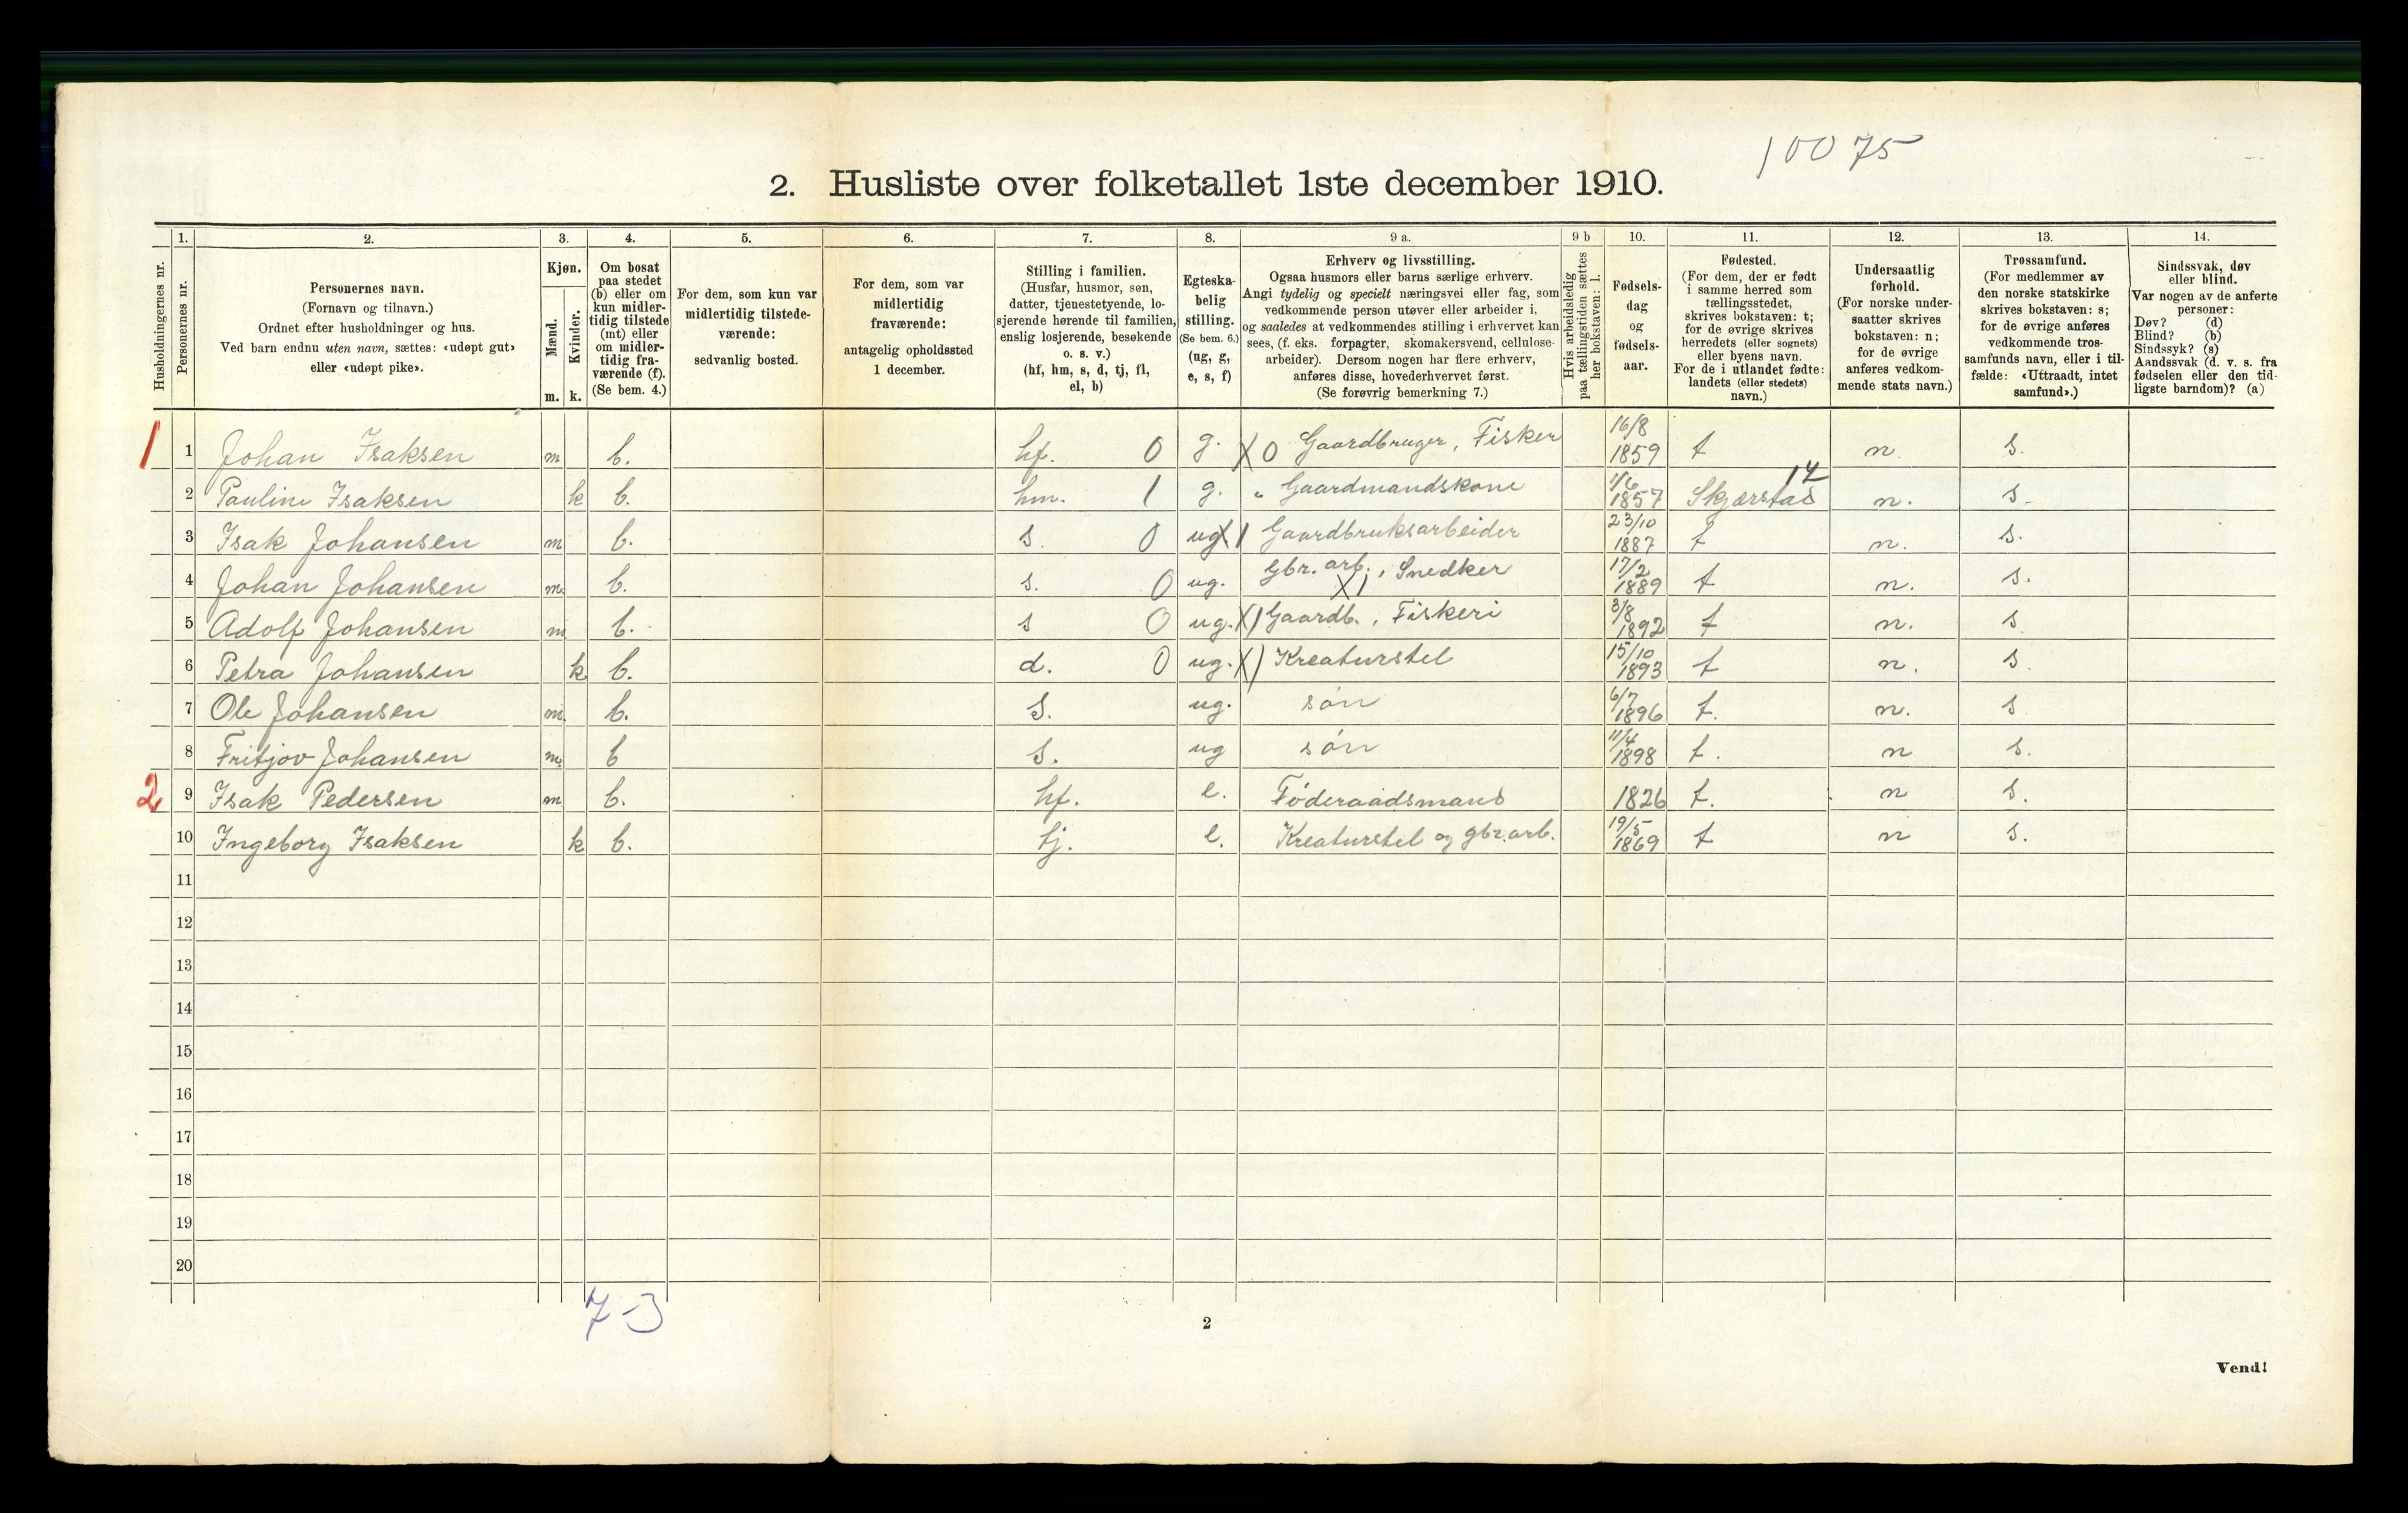 10075
2. Husliste over folketallet 1ste december 1910.
Husholdningernes nr.
1.
Personernes nr.
2.
Personernes navn.
(Fornavn og tilnavn.)
Ordnet efter husholdninger og hus.
Ved barn endnu uten navn, sættes: «udøpt gut»
eller «udøpt pike».
3.
Kjøn.
Mænd.
m.
Kvinder.
k.
4.
Om bosat
paa stedet
(b) eller om
kun midler-
tidig tilstede
(mt) eller
om midler-
tidig fra-
værende (f).
(Se bem. 4.)
5.
For dem, som kun var
midlertidig tilstede-
værende:
sedvanlig bosted.
6.
For dem, som var
midlertidig
fraværende:
antagelig opholdssted
1 december.
7.
Stilling i familien.
(Husfar, husmor, søn,
datter, tjenestetyende, lo-
sjerende hørende til familien,
enslig losjerende, besøkende
o. s. v.)
(hf, hm, s, d, tj, fl,
el, b)
8.
Egteska-
belig
stilling.
(Se bem. 6.)
(ug, g,
e, s, f)
9 a.
Erhverv og livsstilling.
Ogsaa husmors eller barns særlige erhverv.
Angi tydelig og specielt næringsvei eller fag, som
vedkommende person utøver eller arbeider i,
og saaledes at vedkommendes stilling i erhvervet kan
sees, (f. eks. forpagter, skomakersvend, cellulose-
arbeider). Dersom nogen har flere erhverv,
anføres disse, hovederhvervet først.
(Se forøvrig bemerkning 7.)
9 b
Hvis arbeidsledig
paa tællingstiden sættes
her bokstaven: l.
10.
Fødsels-
dag
og
fødsels-
aar.
11.
Fødested.
(For dem, der er født
i samme herred som
tællingsstedet,
skrives bokstaven: t;
for de øvrige skrives
herredets (eller sognets)
eller byens navn.
For de i utlandet fødte:
landets (eller stedets)
navn.)
12.
Undersaatlig
forhold.
(For norske under-
saatter skrives
bokstaven: n;
for de øvrige
anføres vedkom-
mende stats navn.)
13.
Trossamfund.
(For medlemmer av
den norske statskirke
skrives bokstaven: s;
for de øvrige anføres
vedkommende tros-
samfunds navn, eller i til-
fælde: «Uttraadt, intet
samfund».)
14.
Sindssvak, døv
eller blind.
Var nogen av de anførte
personer:
Døv? (d)
Blind? (b)
Sindssyk? (s)
Aandssvak (d. v. s. fra
fødselen eller den tid-
ligste barndom)? (a)
1 1 Johan Isaksen m b. hf. 0 g. X 0 Gaardbruger, Fisker 16/8 1859 t n. s.
2 Pauline Isaksen k b. hm. 1 g. „ Gaardmandskone 1/6 1857 Skjærstad 14 n. s.
3 Isak Johansen m b. s. 0 ug X 1 Gaardbruksarbeider 23/10 1887 t n. s.
4 Johan Johansen m. b. s. 0 ug. X 1 Gbr. arb., Snedker 17/2 1889 t n. s.
5 Adolf Johansen m b. s 0 ug. X 1 Gaardb., Fiskeri 3/8 1892 t n. s
6 Petra Johansen k b. d. 0 ug. X 1 Kreaturstel 15/10 1893 t n. s
7 Ole Johansen m. b. s. ug. søn 6/7 1896 t. n. s
8 Fritjov Johansen m. b s. ug søn 11/4 1898 t. n s.
2 9 Isak Pedersen m b. hf. e. Føderaadsmand 1826 t. n s.
10 Ingeborg Isaksen k b. tj. e. Kreaturstel og gbr.arb. 19/5 1869 t n s.
11
12
13
14
15
16
17
18
19
20
7-3
2
Vend!